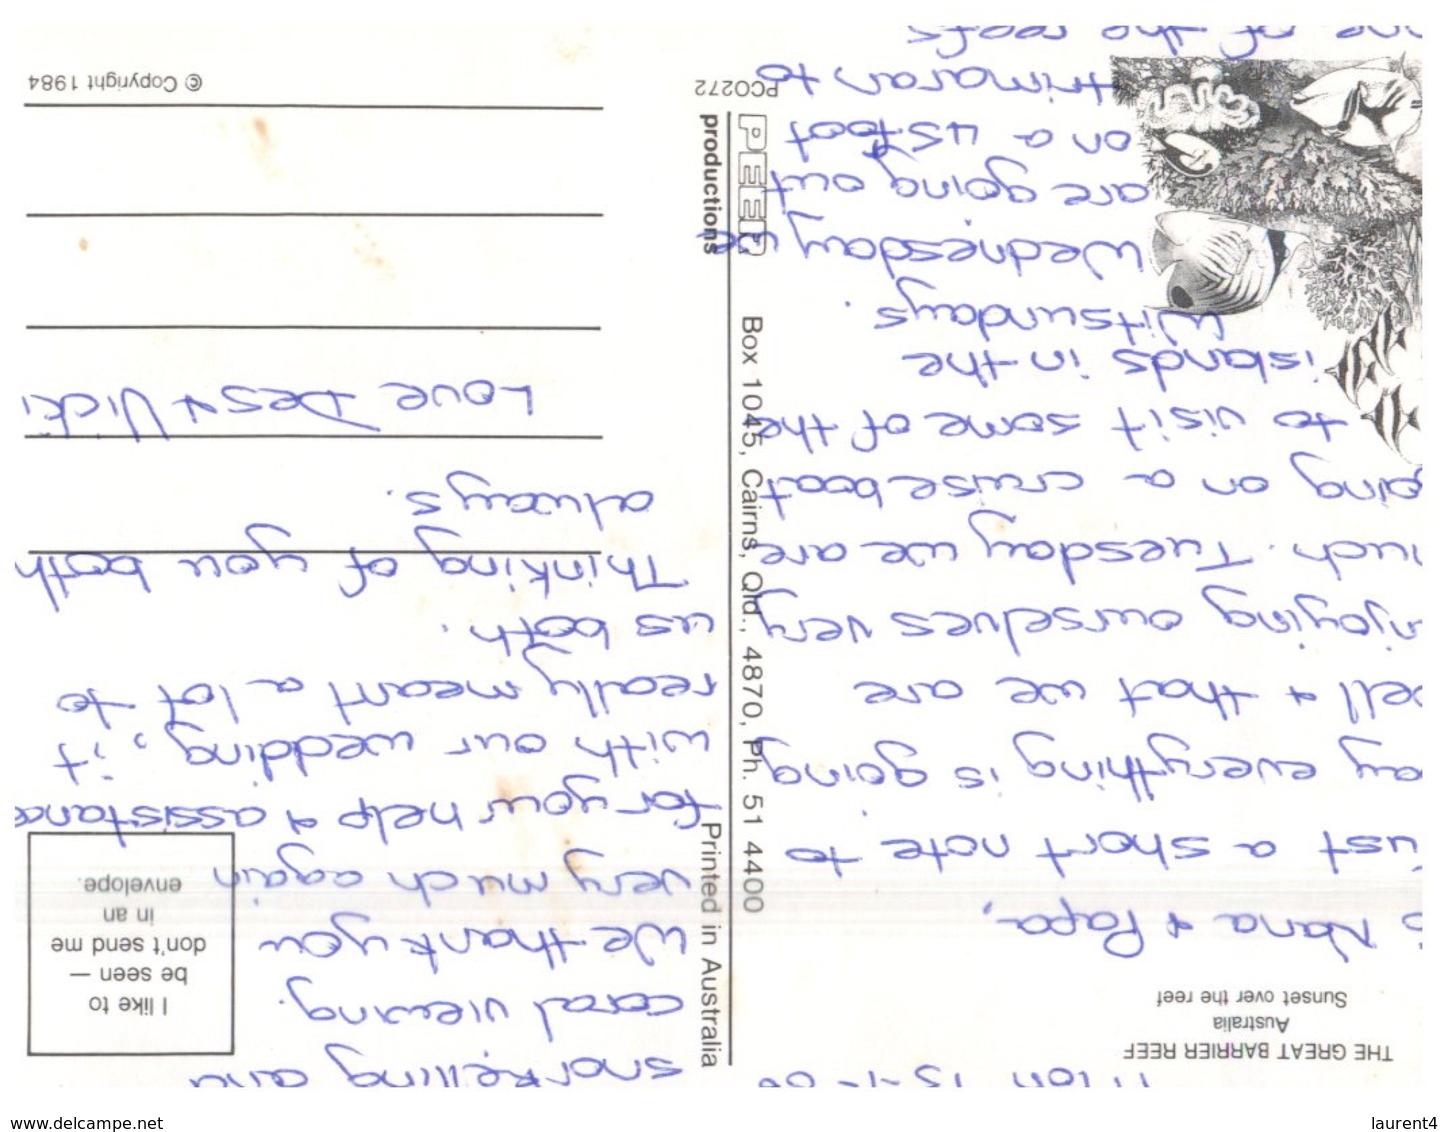 Mon 13-1-86
THE GREAT BARRIER REEF
Australia
Sunset over the reef
Nana & Papa,
ust a short note to
ay everything is going
ell & that we are
njoying ourselves very
uch. Tuesday we are
oing on a cruise boat
to visit some of the
islands in the
Witsundays.
Wednesday we
are going out
on a 45 foot
trimaran to
ne of the reefs
PC0272
PEER
productions
Box 1045, Cairns, Qld., 4870, Ph. 51 4400
Printed in Australia
snorkelling and
coral viewing.
We thank you
very much again
for your help & assistance
with our wedding, it
really meant a lot to
us both.
Thinking of you both
always.
Love Des & Vicki
I like to
be seen —
don't send me
in an
envelope.
© Copyright 1984
www.delcampe.net
laurent4